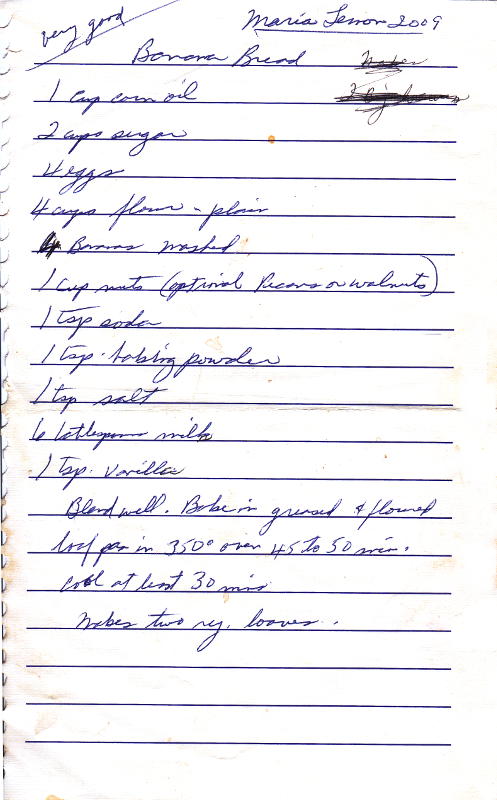 very good
Maria Lemon 2009
Banana Bread
1 cup corn oil
2 cups sugar
4 eggs
4 cups flour - plain
4 Bananas mashed
1 cup nuts (optional Pecans or walnuts)
1 tsp soda
1 tsp. baking powder
1 tsp salt
6 tablespoons milk
1 tsp. vanilla
Blend well. Bake in greased & floured
loaf pan in 350° oven 45 to 50 min.
cool at least 30 mins
Makes two reg. loaves.